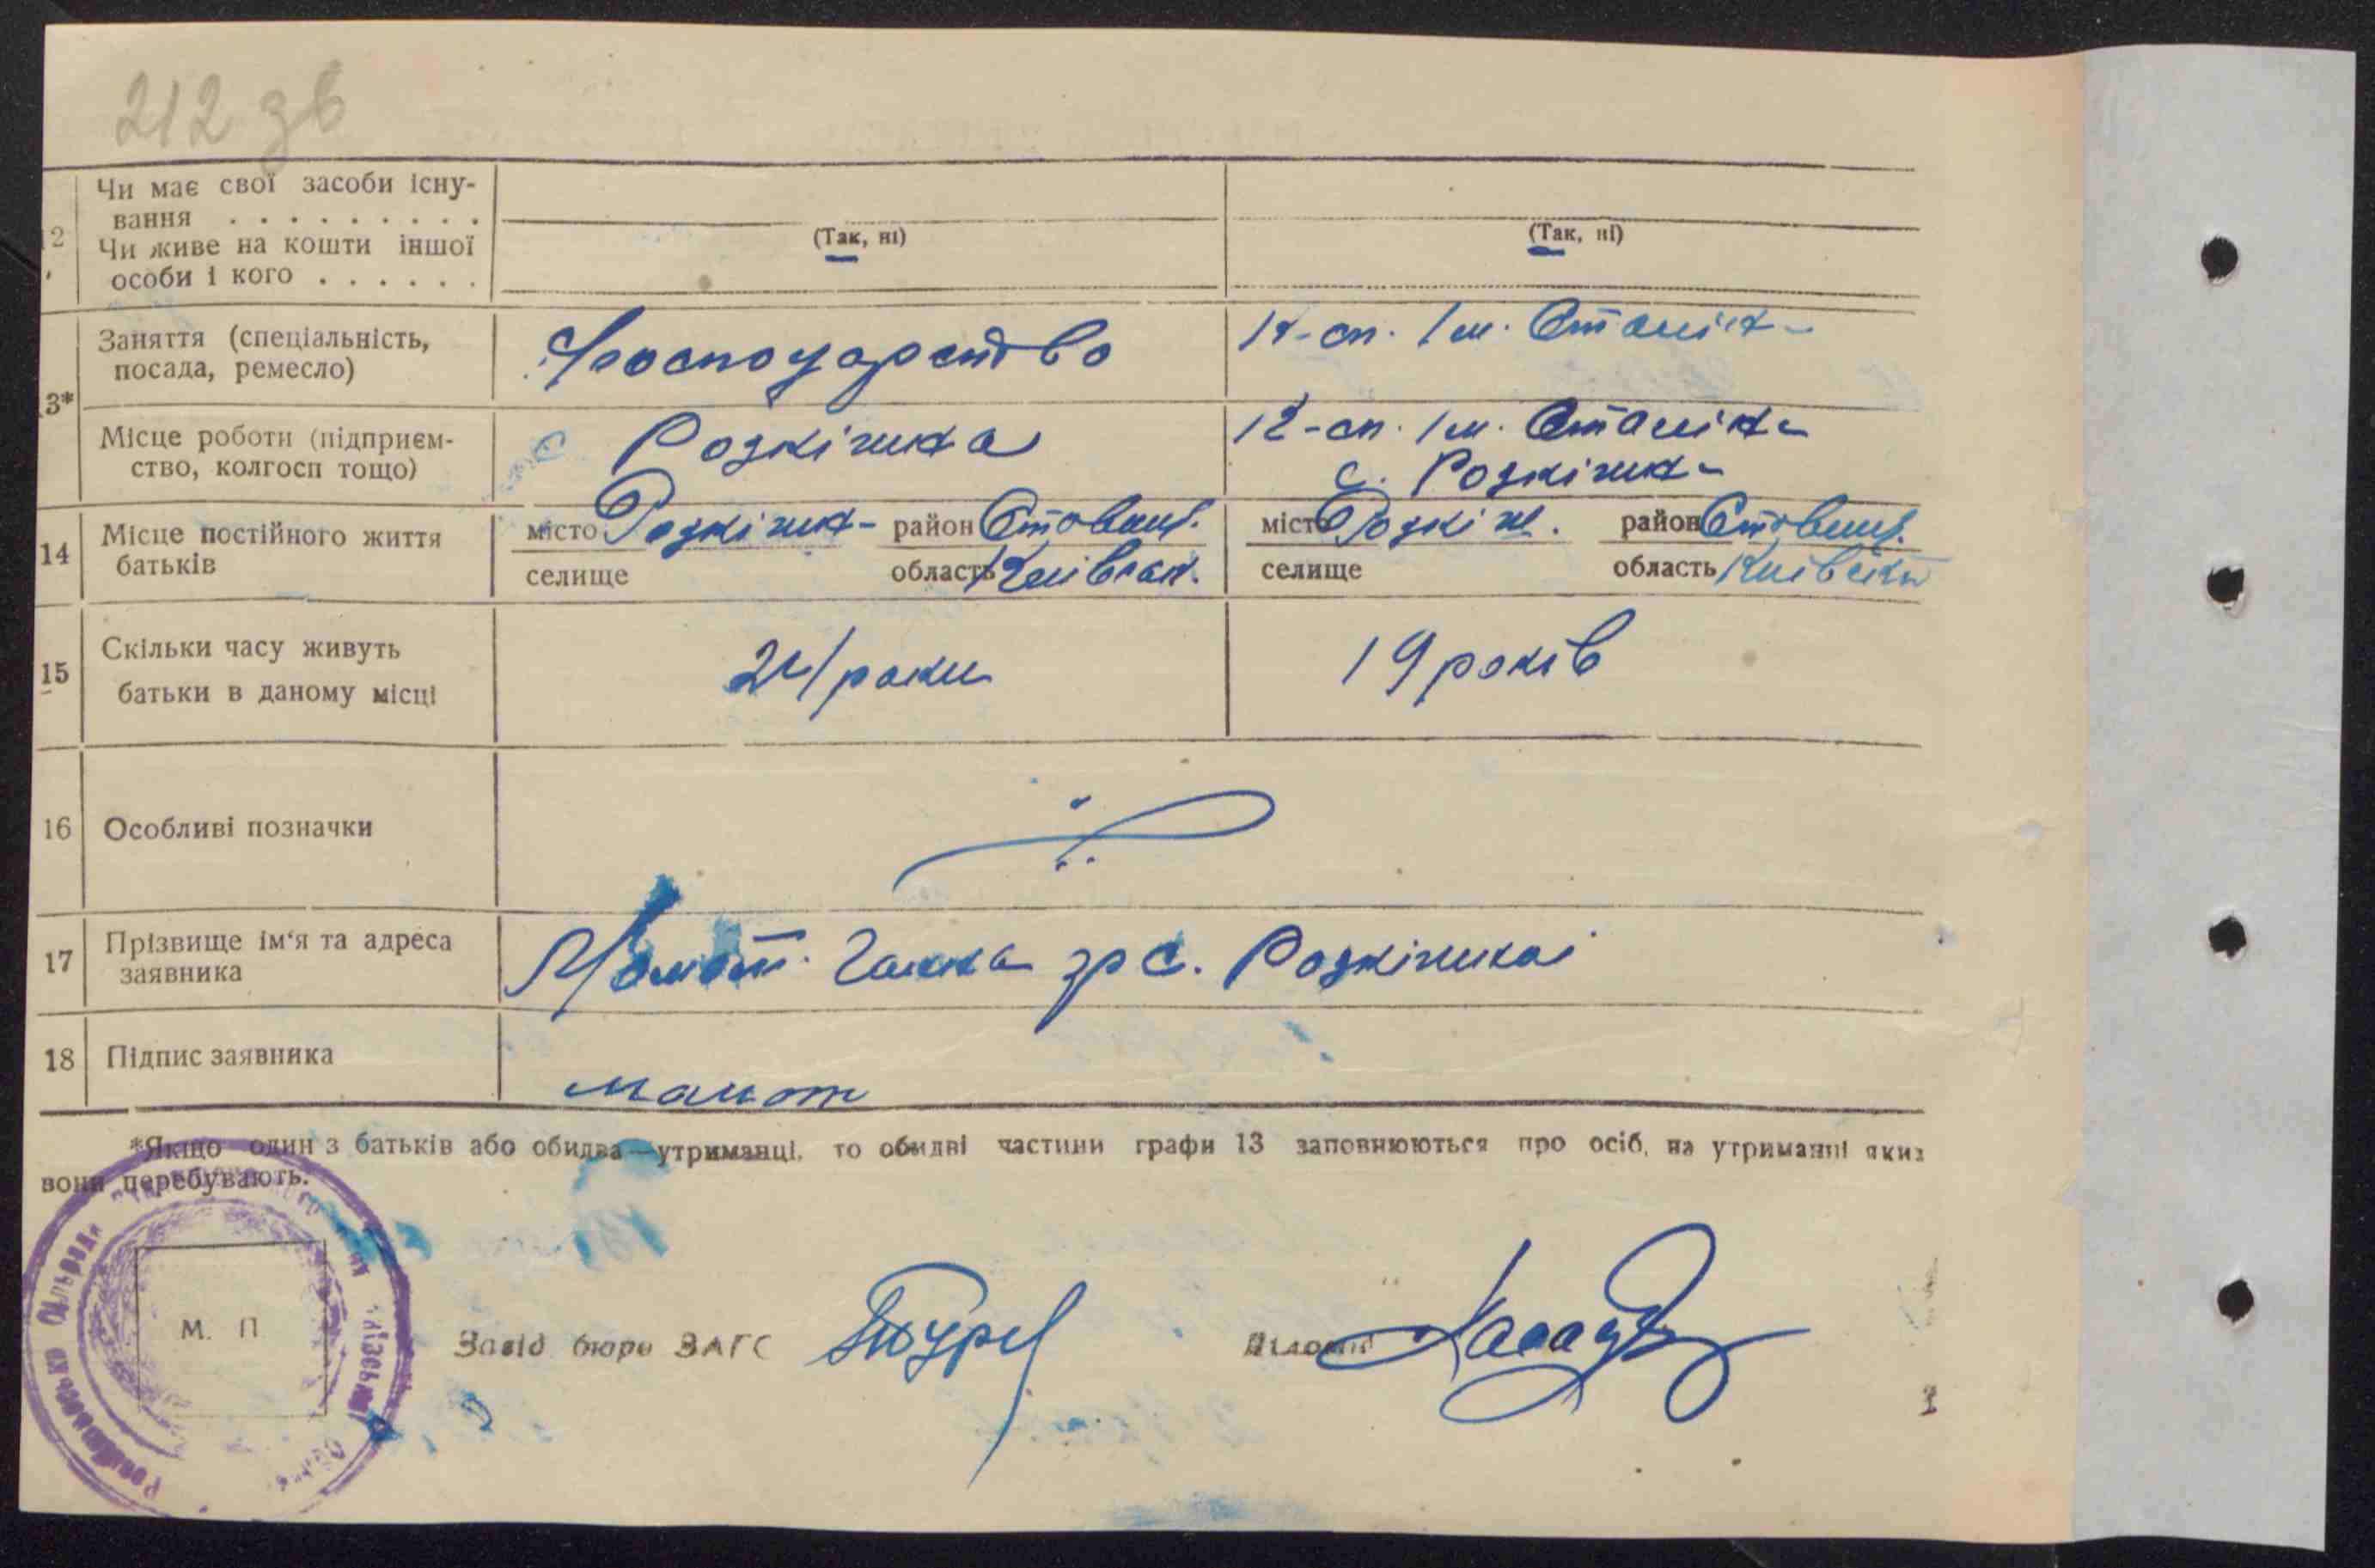 212 зв
2 Чи має свої засоби існу-
вання . . . . . . . . .
(Так, ні) (Так, ні)
Чи живе на кошти іншої
особи і кого . . . . . .
3* Заняття (спеціальність,
посада, ремесло)
Господарство
Місце роботи (підприєм-
ство, колгосп тощо)
с Розкішна
с. Розкішна
14 Місце постійного життя
батьків
місто Розкішна район Ставищ. місто Розкіш. район Ставищ.
селище область Київськ. селище область Київська
15 Скільки часу живуть
батьки в даному місці
21 роки 19 років
16 Особливі позначки
17 Прізвище ім'я та адреса
заявника
Мамот. Ганна гр с. Розкішна
18 Підпис заявника
мамот
*Якщо один з батьків або обидва—утриманці, то обидві частини графи 13 заповнюються про осіб, на утриманні яких
вони перебувають.
М. П
Завід бюро ЗАГС Діловод